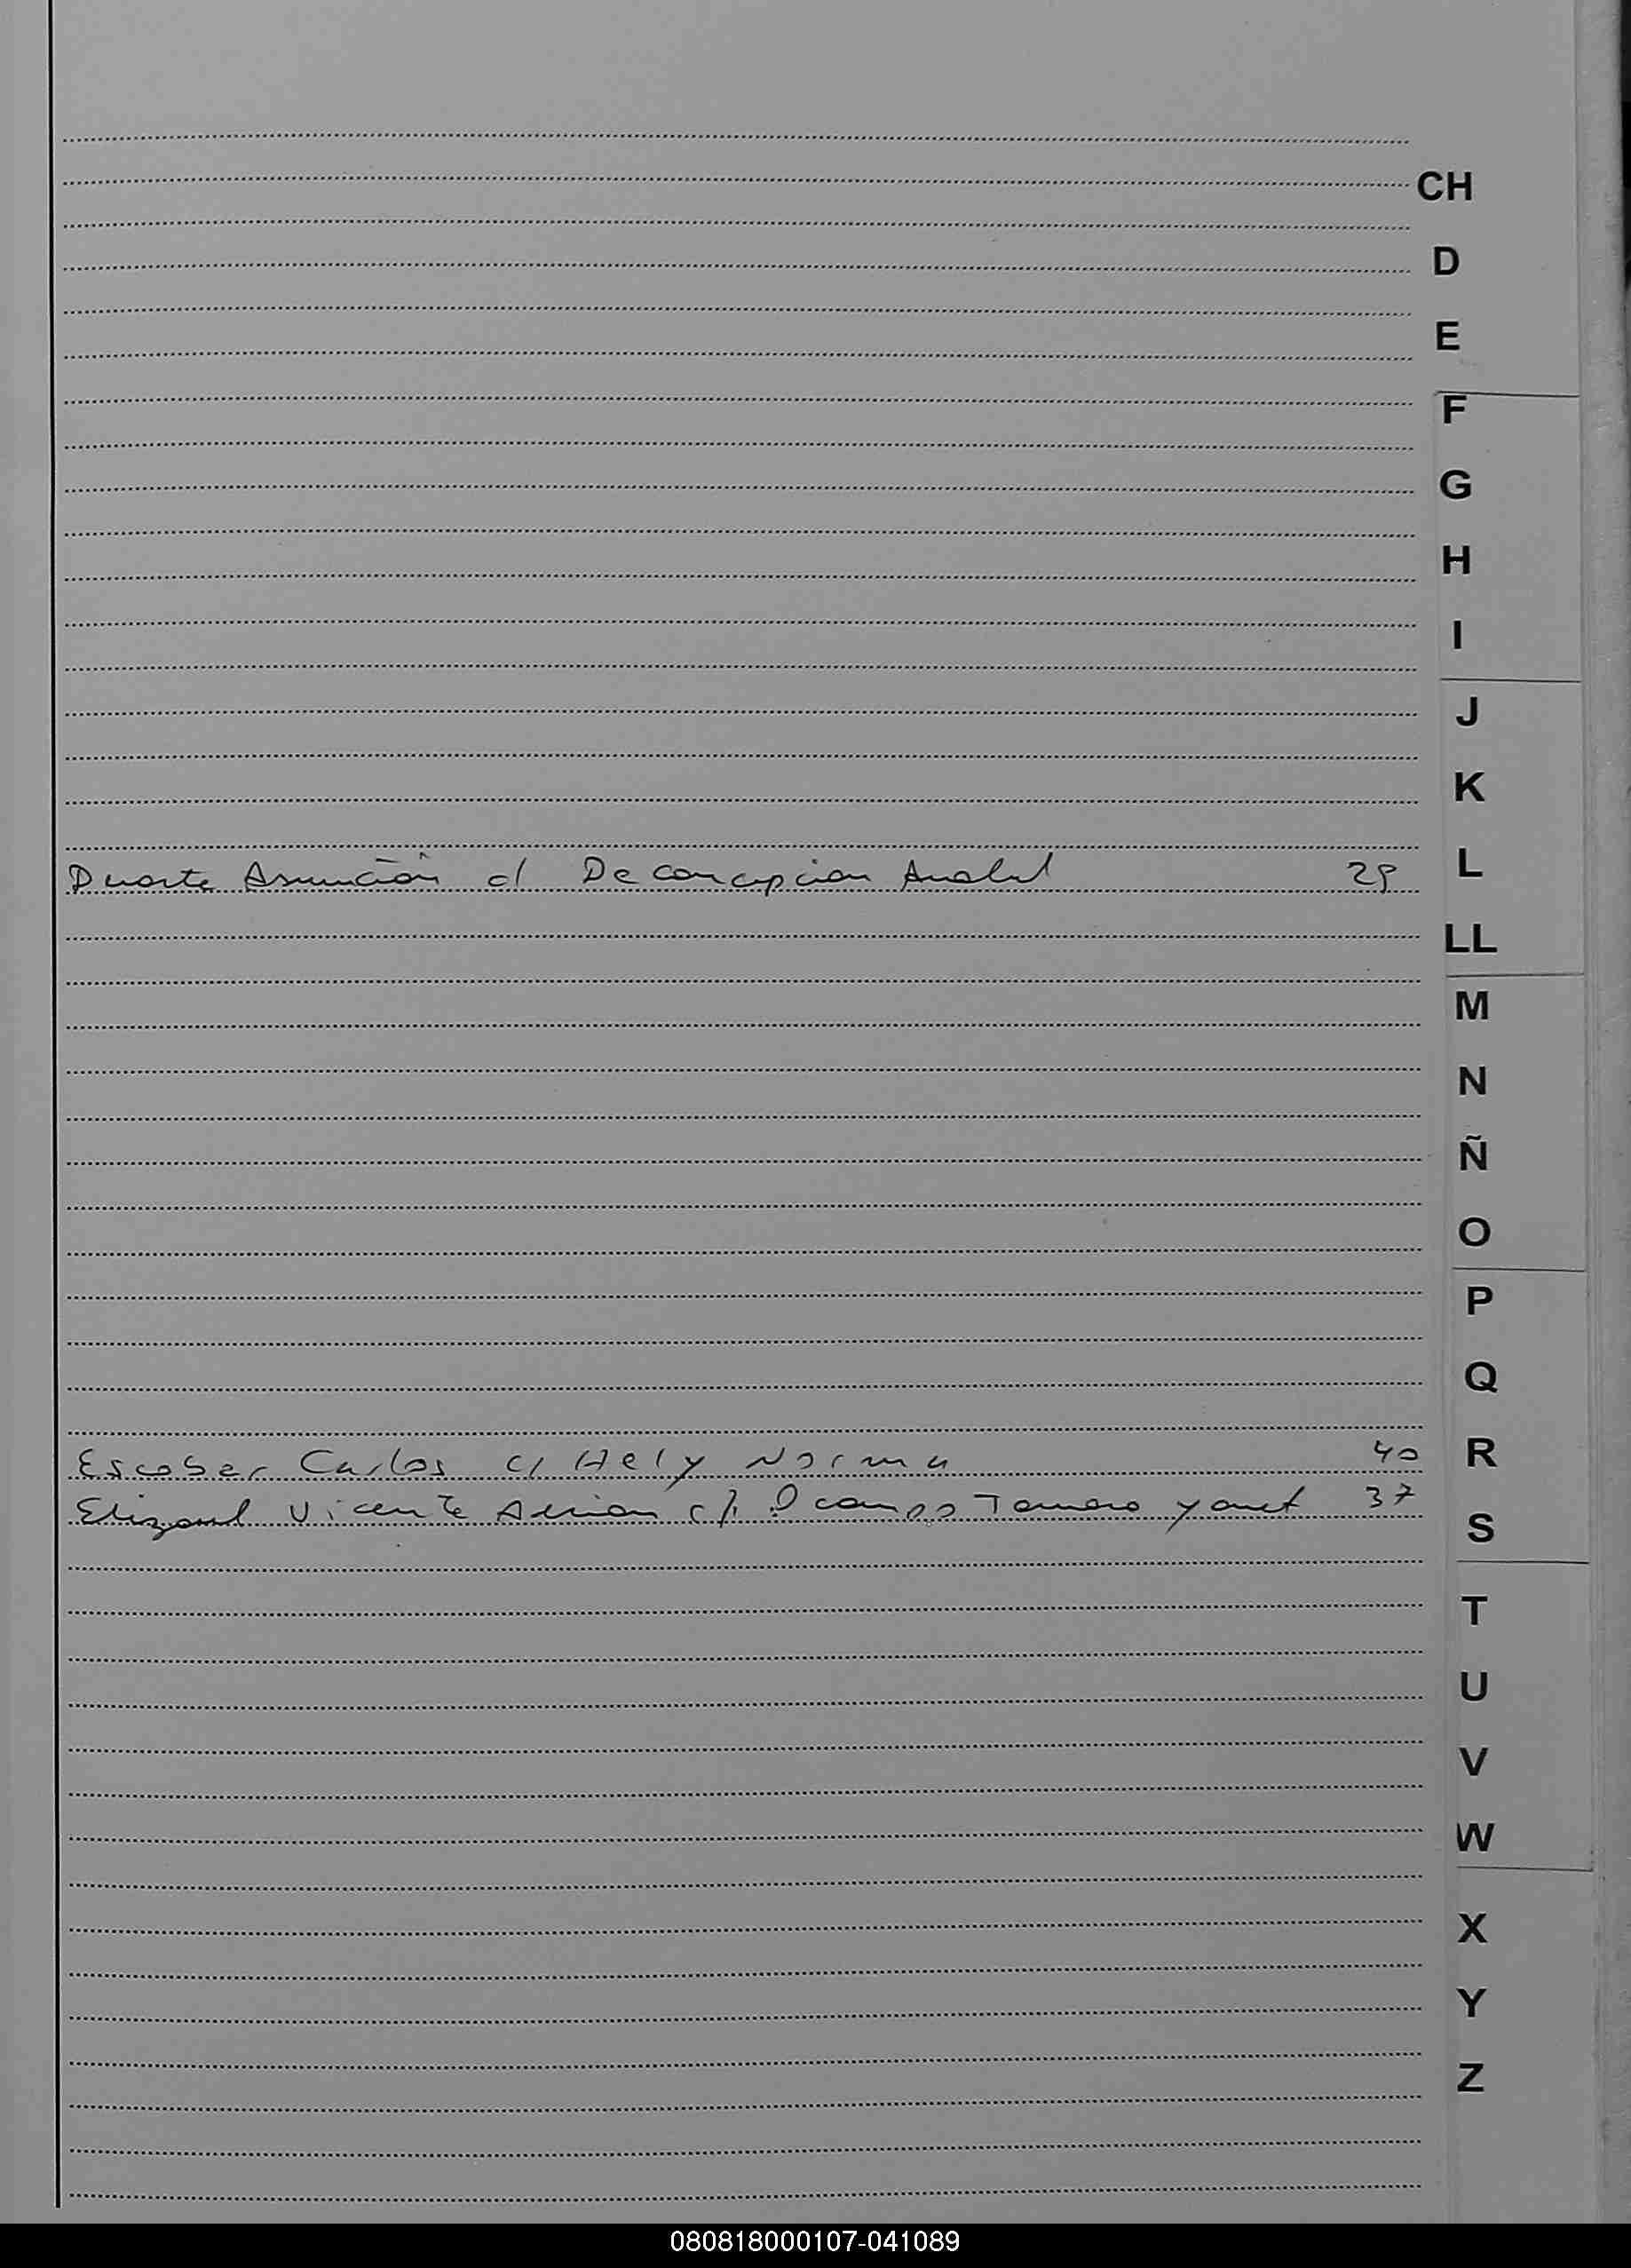 CH
D
E
F
G
H
I
J
K
Duarte Asunción c/ De concepcion Anabel 29
L
LL
M
N
Ñ
O
P
Q
Escobar Carlos c/ Hely Norma 40
R
Vicente c/. Ocampo Tamara yanet 37
S
T
U
V
W
X
Y
Z
080818000107-041089